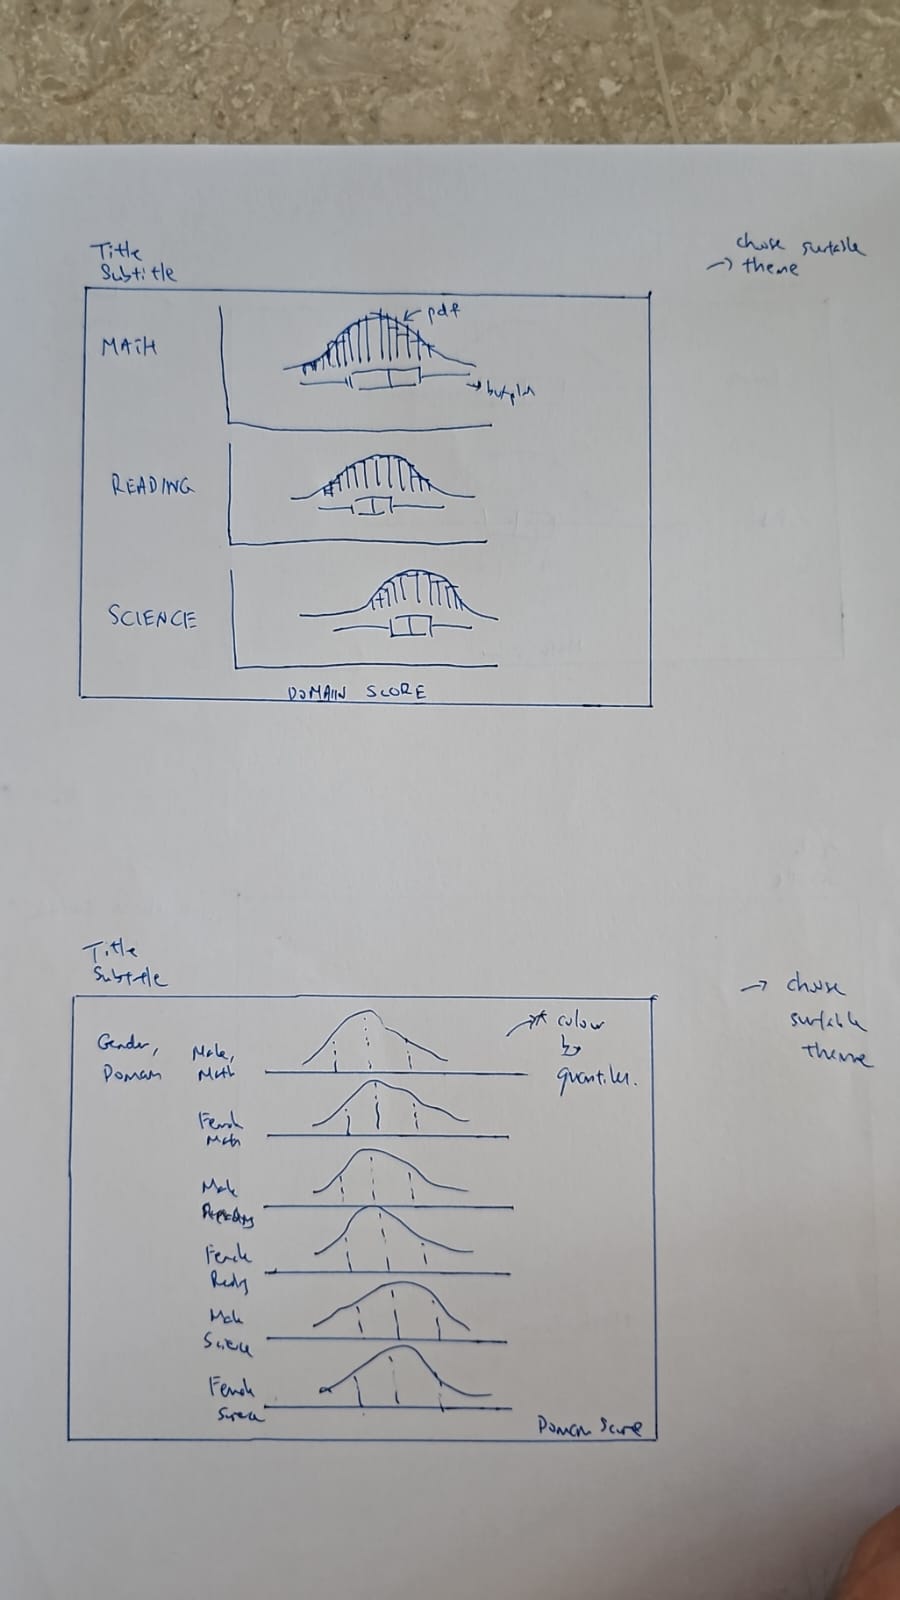 Title
Subtitle
chose suitable
→ theme
MATH
← pdf
→ boxplot
READING
SCIENCE
DOMAIN SCORE
Title
Subtitle
→ choose
suitable
theme
Gender,
Domain
Male,
Math
→ * colour
by
quantiles.
Female
Math
Male
Reading
Female
Readg
Male
Science
Female
Science
Domain Score